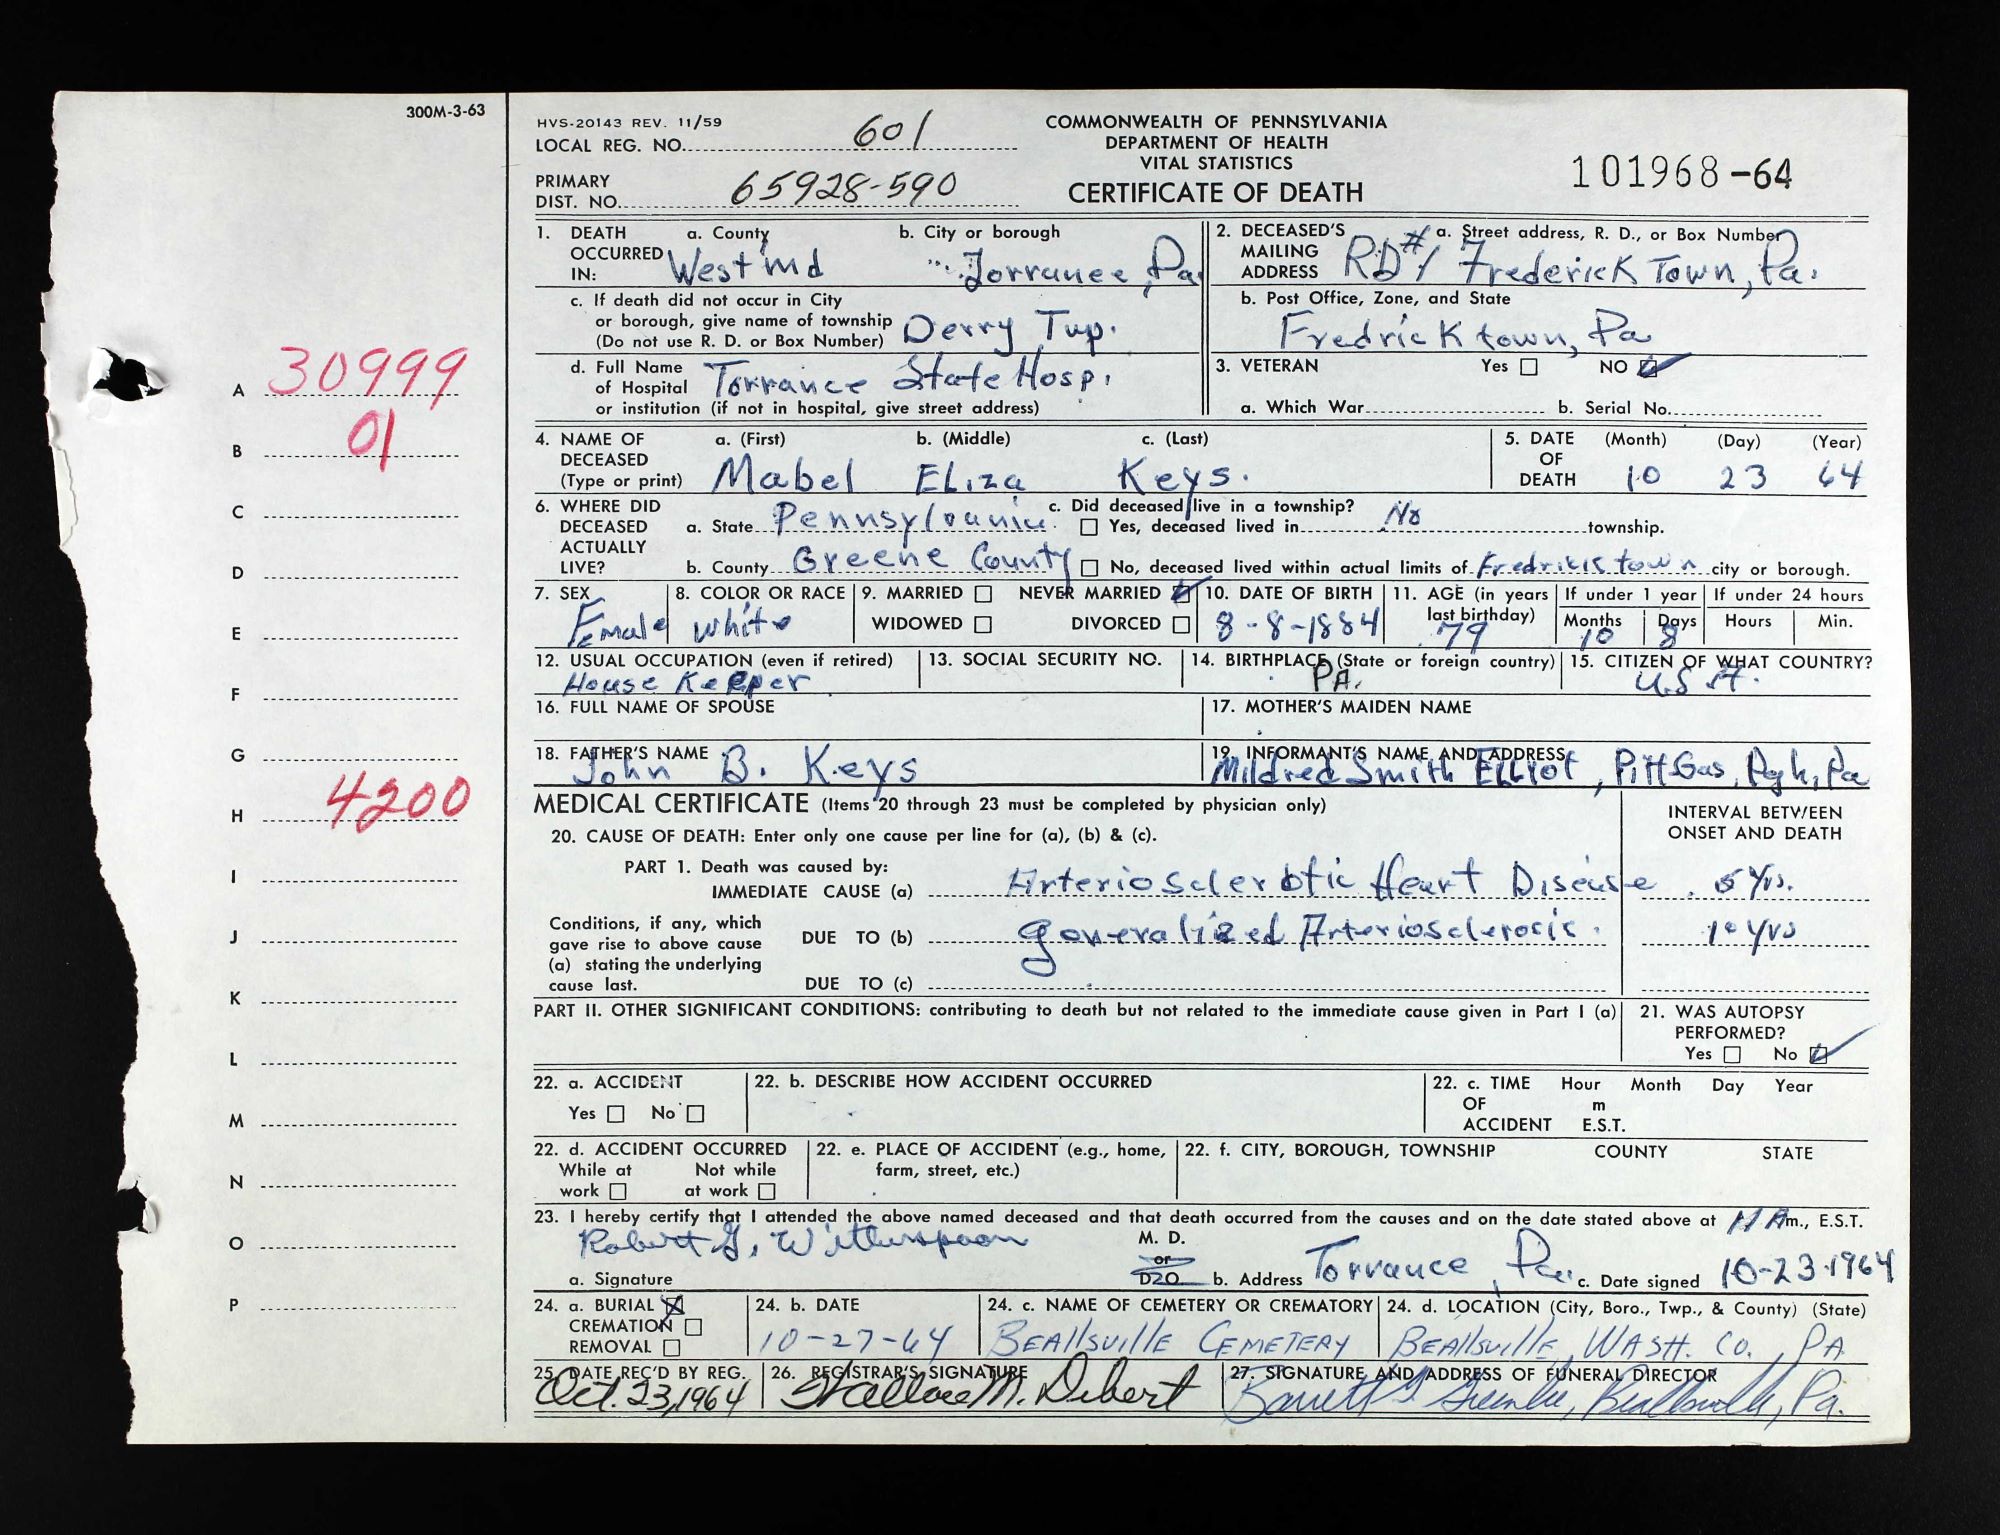 300M-3-63
HVS-20143 REV. 11/59
LOCAL REG. NO. 601
PRIMARY
DIST. NO. 65928-590
COMMONWEALTH OF PENNSYLVANIA
DEPARTMENT OF HEALTH
VITAL STATISTICS
CERTIFICATE OF DEATH
101968-64
1. DEATH OCCURRED IN: a. County Westmd b. City or borough Torrance, Pa
c. If death did not occur in City
or borough, give name of township
(Do not use R. D. or Box Number) Derry Twp.
d. Full Name
of Hospital Torrance State Hosp.
or institution (if not in hospital, give street address)
2. DECEASED'S MAILING ADDRESS a. Street address, R. D., or Box Number
RD#1 Frederick Town, Pa.
b. Post Office, Zone, and State
Fredricktown, Pa
3. VETERAN Yes NO
a. Which War b. Serial No.
4. NAME OF DECEASED (Type or print) a. (First) b. (Middle) c. (Last)
Mabel Eliza Keys.
5. DATE OF DEATH (Month) (Day) (Year)
10 23 64
6. WHERE DID DECEASED ACTUALLY LIVE? a. State Pennsylvania
b. County Greene County
c. Did deceased live in a township?
Yes, deceased lived in No township.
No, deceased lived within actual limits of Fredricktown city or borough.
7. SEX Female
8. COLOR OR RACE white
9. MARRIED NEVER MARRIED
WIDOWED DIVORCED
10. DATE OF BIRTH 8-8-1884
11. AGE (in years last birthday) 79
If under 1 year Months 10 Days 8
If under 24 hours Hours Min.
12. USUAL OCCUPATION (even if retired) House Keeper
13. SOCIAL SECURITY NO.
14. BIRTHPLACE (State or foreign country) PA.
15. CITIZEN OF WHAT COUNTRY? U.S.A.
16. FULL NAME OF SPOUSE
17. MOTHER'S MAIDEN NAME
18. FATHER'S NAME John B. Keys
19. INFORMANT'S NAME AND ADDRESS
Mildred Smith Elliot, Pitt Gas, Pgh, Pa
MEDICAL CERTIFICATE (Items 20 through 23 must be completed by physician only)
20. CAUSE OF DEATH: Enter only one cause per line for (a), (b) & (c).
INTERVAL BETWEEN
ONSET AND DEATH
PART 1. Death was caused by:
IMMEDIATE CAUSE (a) Arteriosclerotic Heart Disease 5 Yrs.
Conditions, if any, which
gave rise to above cause
(a) stating the underlying
cause last.
DUE TO (b) Generalized Arteriosclerosis. 10 Yrs
DUE TO (c)
PART II. OTHER SIGNIFICANT CONDITIONS: contributing to death but not related to the immediate cause given in Part I (a)
21. WAS AUTOPSY
PERFORMED?
Yes No
22. a. ACCIDENT
Yes No
22. b. DESCRIBE HOW ACCIDENT OCCURRED
22. c. TIME OF ACCIDENT Hour Month Day Year
m
E.S.T.
22. d. ACCIDENT OCCURRED
While at work Not while at work
22. e. PLACE OF ACCIDENT (e.g., home,
farm, street, etc.)
22. f. CITY, BOROUGH, TOWNSHIP COUNTY STATE
23. I hereby certify that I attended the above named deceased and that death occurred from the causes and on the date stated above at 11 Am., E.S.T.
Robert G. Witherspoon
a. Signature
M. D.
or
b. Address Torrance, Pa. c. Date signed 10-23-1964
24. a. BURIAL
CREMATION
REMOVAL
24. b. DATE
10-27-64
24. c. NAME OF CEMETERY OR CREMATORY
BEAllsvillE CEMETERY
24. d. LOCATION (City, Boro., Twp., & County) (State)
BEAllsvillE, WASH. CO., PA
25. DATE REC'D BY REG.
Oct. 23, 1964
26. REGISTRAR'S SIGNATURE
Wallace M. Dibert
27. SIGNATURE AND ADDRESS OF FUNERAL DIRECTOR
Beallsville, Pa.
A 30999
B 01
C
D
E
F
G
H 4200
I
J
K
L
M
N
O
P